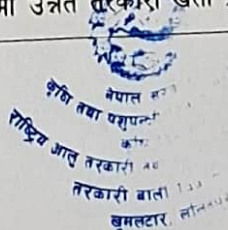 मा उन्नत तरकारी खेती
नेपाल
कृषि तथा पशुपन्छी
राष्ट्रिय आलु तरकारी
तरकारी बाली
खुमलटार,